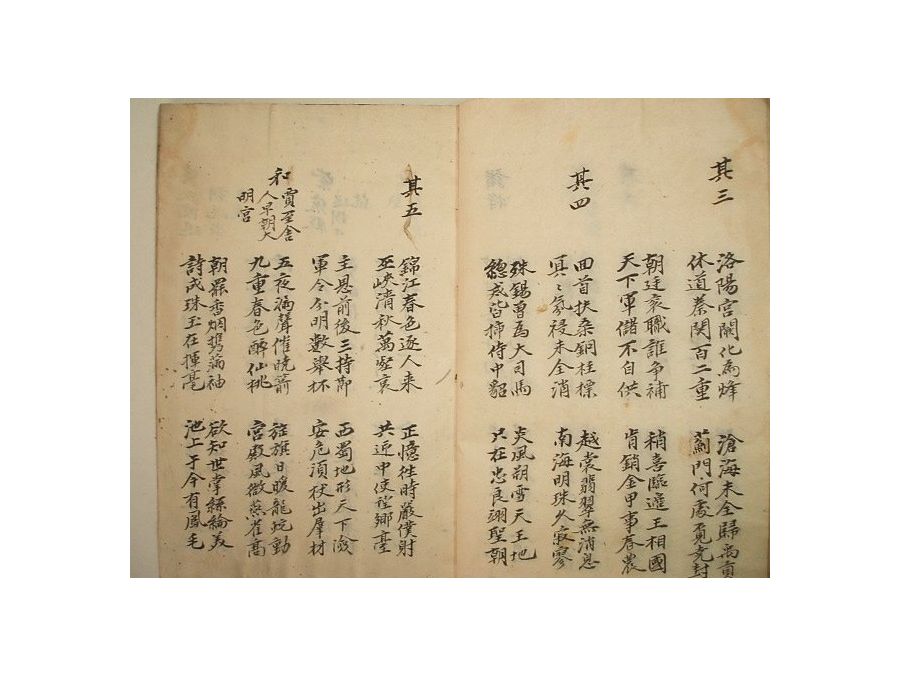 其三
洛陽宮闕化為烽
休道秦關百二重
滄海未全歸禹貢
薊門何處覓堯封
朝廷袞職誰爭補
天下軍儲不自供
稍喜臨邊王相國
肯銷金甲事春農
其四
回首扶桑銅柱標
冥〻氛祲未全消
越裳翡翠無消息
南海明珠久寂寥
殊錫曾為大司馬
總戎皆插侍中貂
炎風朔雪天王地
只在忠良翊聖朝
其五
錦江春色逐人来
巫峽清秋萬壑哀
正憶往時嚴僕射
共迎中使望鄉臺
主恩前後三持節
軍令分明數舉杯
西蜀地形天下險
安危須仗出羣材
和賈至舍
人早朝大
明宮
五夜漏聲催曉箭
九重春色醉仙桃
旌旗日暖龍蛇動
宮殿風微燕雀高
朝罷香烟携滿袖
詩成珠玉在揮毫
欲知世掌絲綸美
池上于今有鳳毛